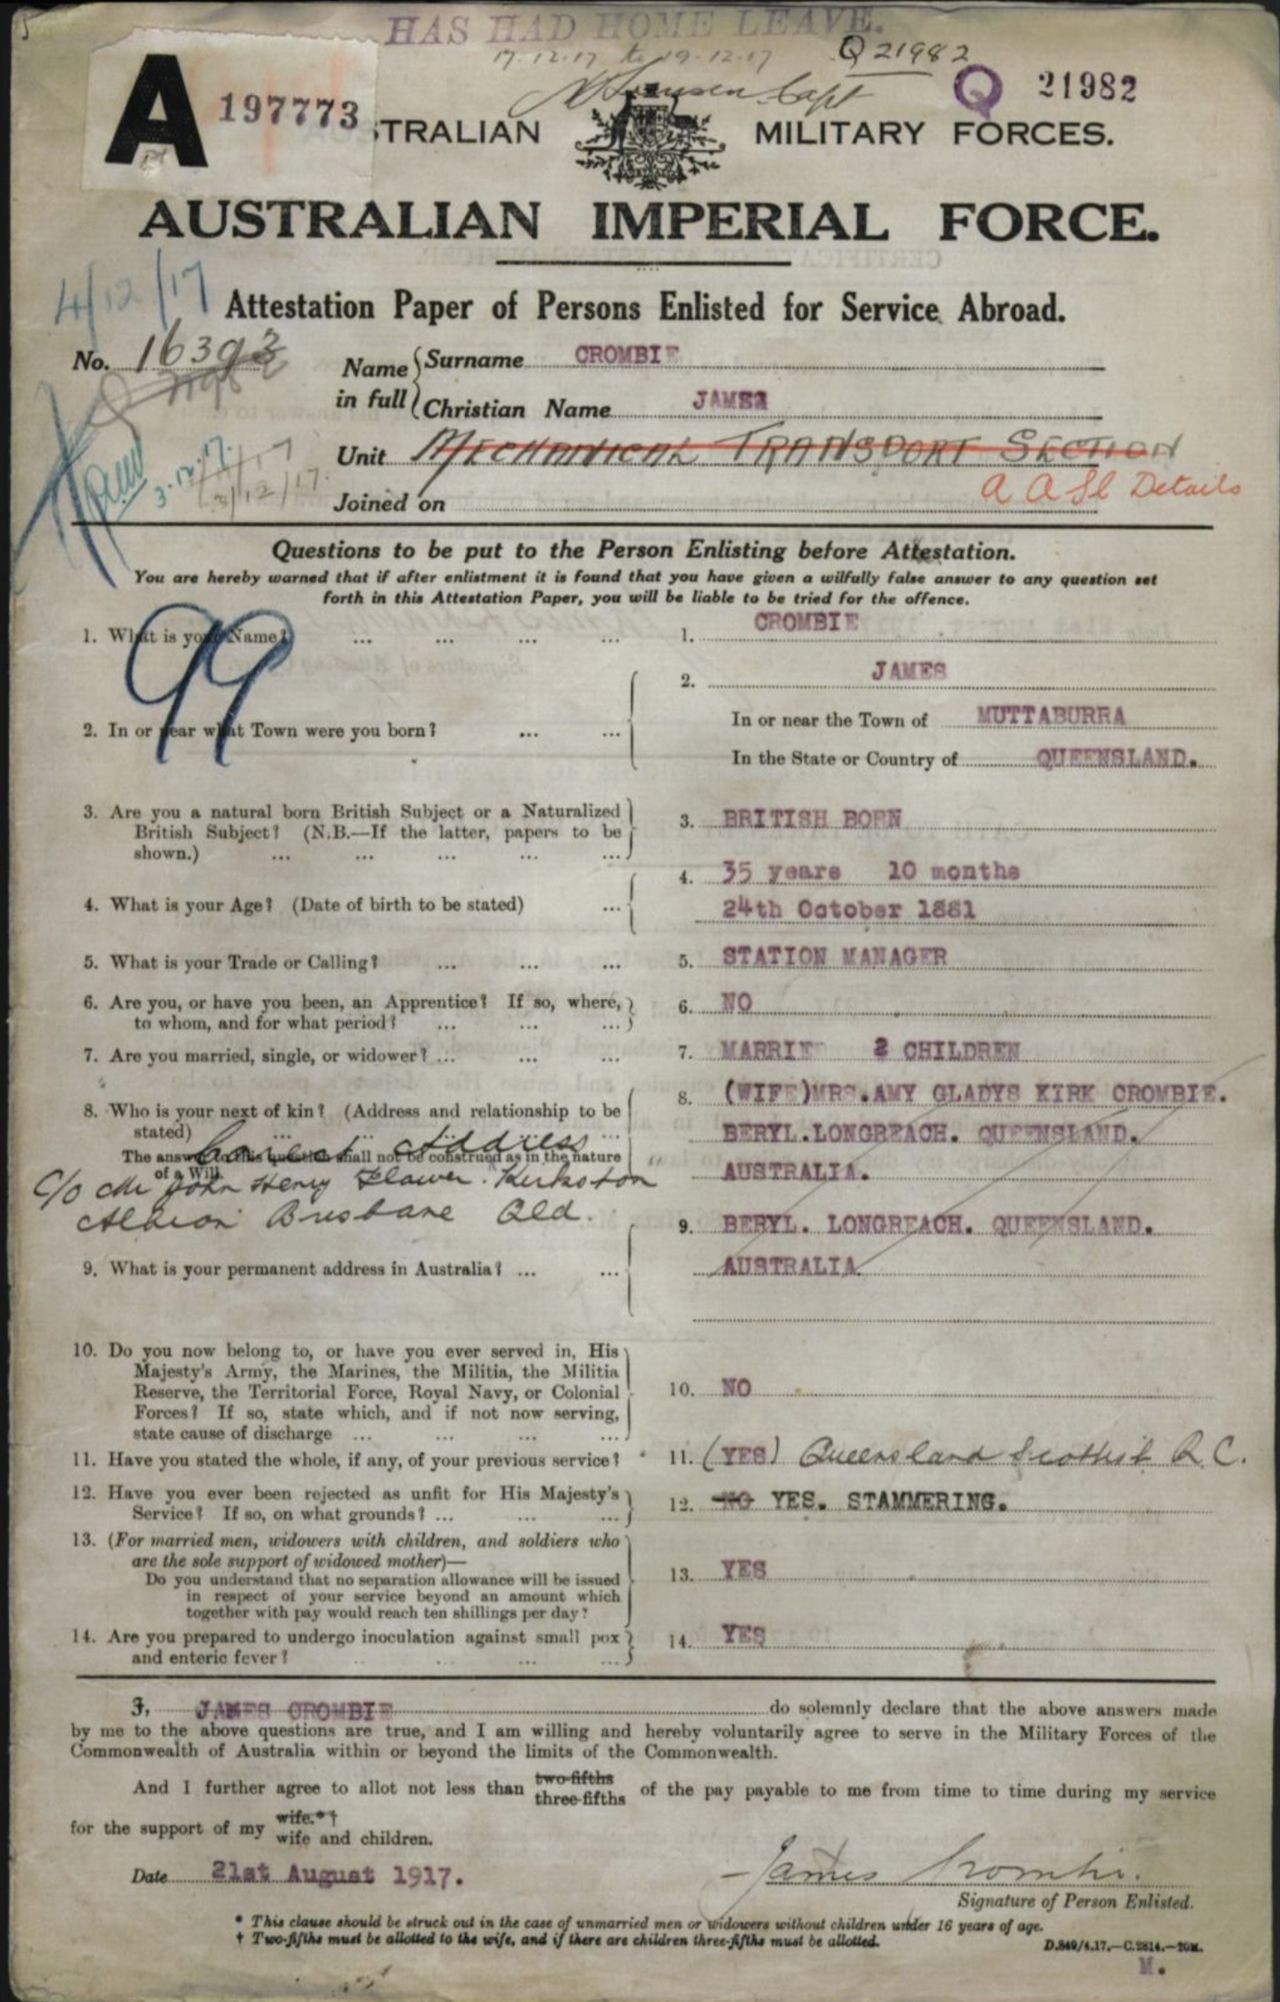 HAS HAD HOME LEAVE.
17.12.17 to 19.12.17 Q 21982
Capt Q 21982
A 197773
STRALIAN MILITARY FORCES.
AUSTRALIAN IMPERIAL FORCE.
4/12/17
Attestation Paper of Persons Enlisted for Service Abroad.
No. 16393
Name in full { Surname CROMBIE
Christian Name JAMES
Unit MECHANICAL TRANSPORT SECTION
A A S C Details
3.12.17.
3/12/17.
Joined on
Questions to be put to the Person Enlisting before Attestation.
You are hereby warned that if after enlistment it is found that you have given a wilfully false answer to any question set
forth in this Attestation Paper, you will be liable to be tried for the offence.
99
1. What is your Name? ... ... ... ... 1. CROMBIE
2. JAMES
2. In or near what Town were you born? ... ... In or near the Town of MUTTABURRA
In the State or Country of QUEENSLAND.
3. Are you a natural born British Subject or a Naturalized
British Subject? (N.B.—If the latter, papers to be
shown.) ... ... ... ... ... 3. BRITISH BORN
4. What is your Age? (Date of birth to be stated) ... 4. 35 years 10 months
24th October 1881
5. What is your Trade or Calling? ... ... ... 5. STATION MANAGER
6. Are you, or have you been, an Apprentice? If so, where,
to whom, and for what period? ... ... ... 6. NO
7. Are you married, single, or widower? ... ... ... 7. MARRIED 2 CHILDREN
8. Who is your next of kin? (Address and relationship to be
stated) ... ... ... ...
The answer to this question shall not be construed as in the nature
of a Will.
8. (WIFE)MRS.AMY GLADYS KIRK CROMBIE.
BERYL.LONGREACH. QUEENSLAND.
AUSTRALIA.
Correct Address
C/O Mr John Henry Flower. Kirkston
Albion Brisbane Qld.
9. What is your permanent address in Australia? ... ... 9. BERYL. LONGREACH. QUEENSLAND.
AUSTRALIA
10. Do you now belong to, or have you ever served in, His
Majesty's Army, the Marines, the Militia, the Militia
Reserve, the Territorial Force, Royal Navy, or Colonial
Forces? If so, state which, and if not now serving,
state cause of discharge ... ... ... ... 10. NO
11. Have you stated the whole, if any, of your previous service? 11. (YES) Queensland Scottish R C.
12. Have you ever been rejected as unfit for His Majesty's
Service? If so, on what grounds? ... ... ... 12. NO YES. STAMMERING.
13. (For married men, widowers with children, and soldiers who
are the sole support of widowed mother)—
Do you understand that no separation allowance will be issued
in respect of your service beyond an amount which
together with pay would reach ten shillings per day? 13. YES
14. Are you prepared to undergo inoculation against small pox
and enteric fever? ... ... ... ... 14. YES
I, JAMES CROMBIE do solemnly declare that the above answers made
by me to the above questions are true, and I am willing and hereby voluntarily agree to serve in the Military Forces of the
Commonwealth of Australia within or beyond the limits of the Commonwealth.
And I further agree to allot not less than two-fifths three-fifths of the pay payable to me from time to time during my service
for the support of my wife.*† wife and children.
Date 21st August 1917.
James Crombie.
Signature of Person Enlisted.
* This clause should be struck out in the case of unmarried men or widowers without children under 16 years of age.
† Two-fifths must be allotted to the wife, and if there are children three-fifths must be allotted.
D.849/4.17.—C.2814.—20M.
M.